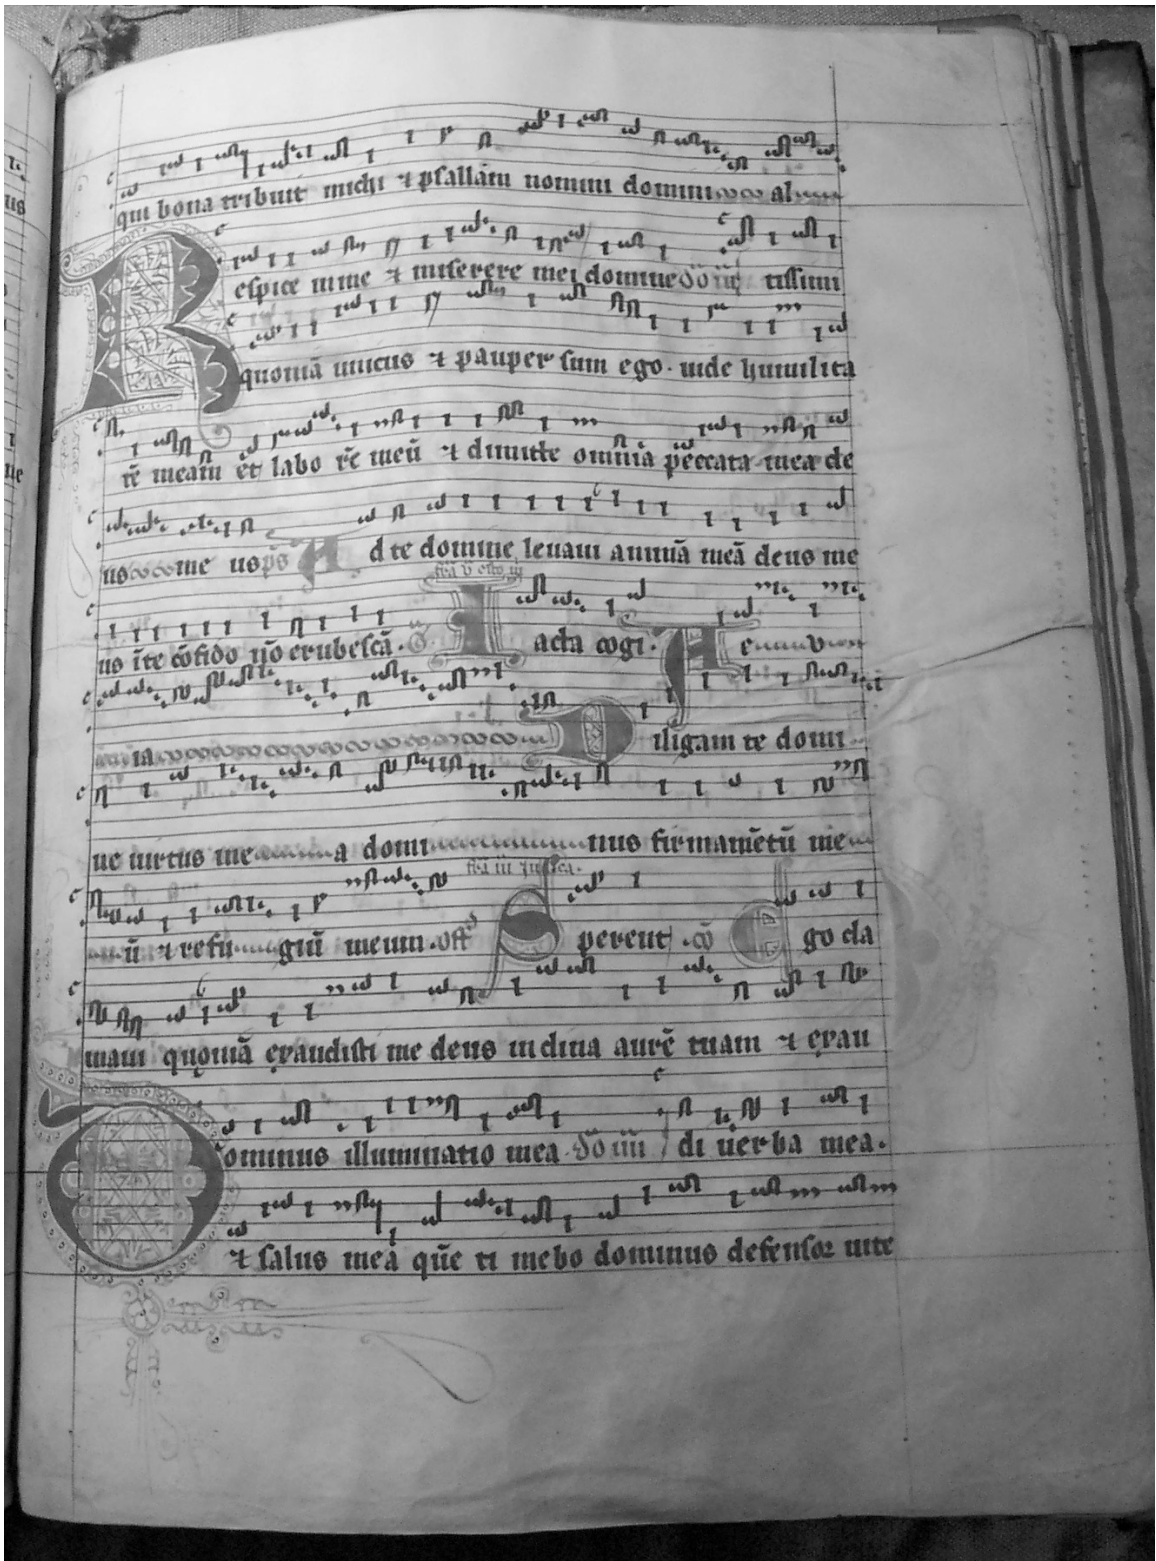 qui bona tribuit michi ⁊ psallam nomini domini al
Respice in me ⁊ miserere mei domine dō iii tissimi
quoniā unicus ⁊ pauper sum ego. uide humilita
tē meam et labo rē meū ⁊ dimitte omnia peccata mea de
us me us ps Ad te domine leuaui animā meā deus me
us ī te cōfido nō erubescā. Iacta cogi. A e u
ia Diligam te domi
ne uirtus me a domi nus firmamētū me
ū ⁊ refu giū meum. off Sperent .cō Ego cla
maui quoniā exaudisti me deus inclina aurē tuam ⁊ exau
Dominus illuminatio mea dō iiii di uerba mea.
⁊ salus mea quē ti mebo dominus defensor uite